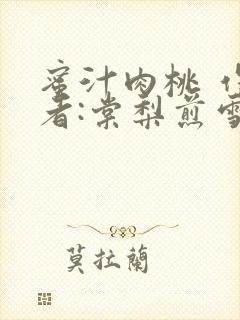 蜜汁肉桃 作
者:棠梨煎雪
莫拉蘭